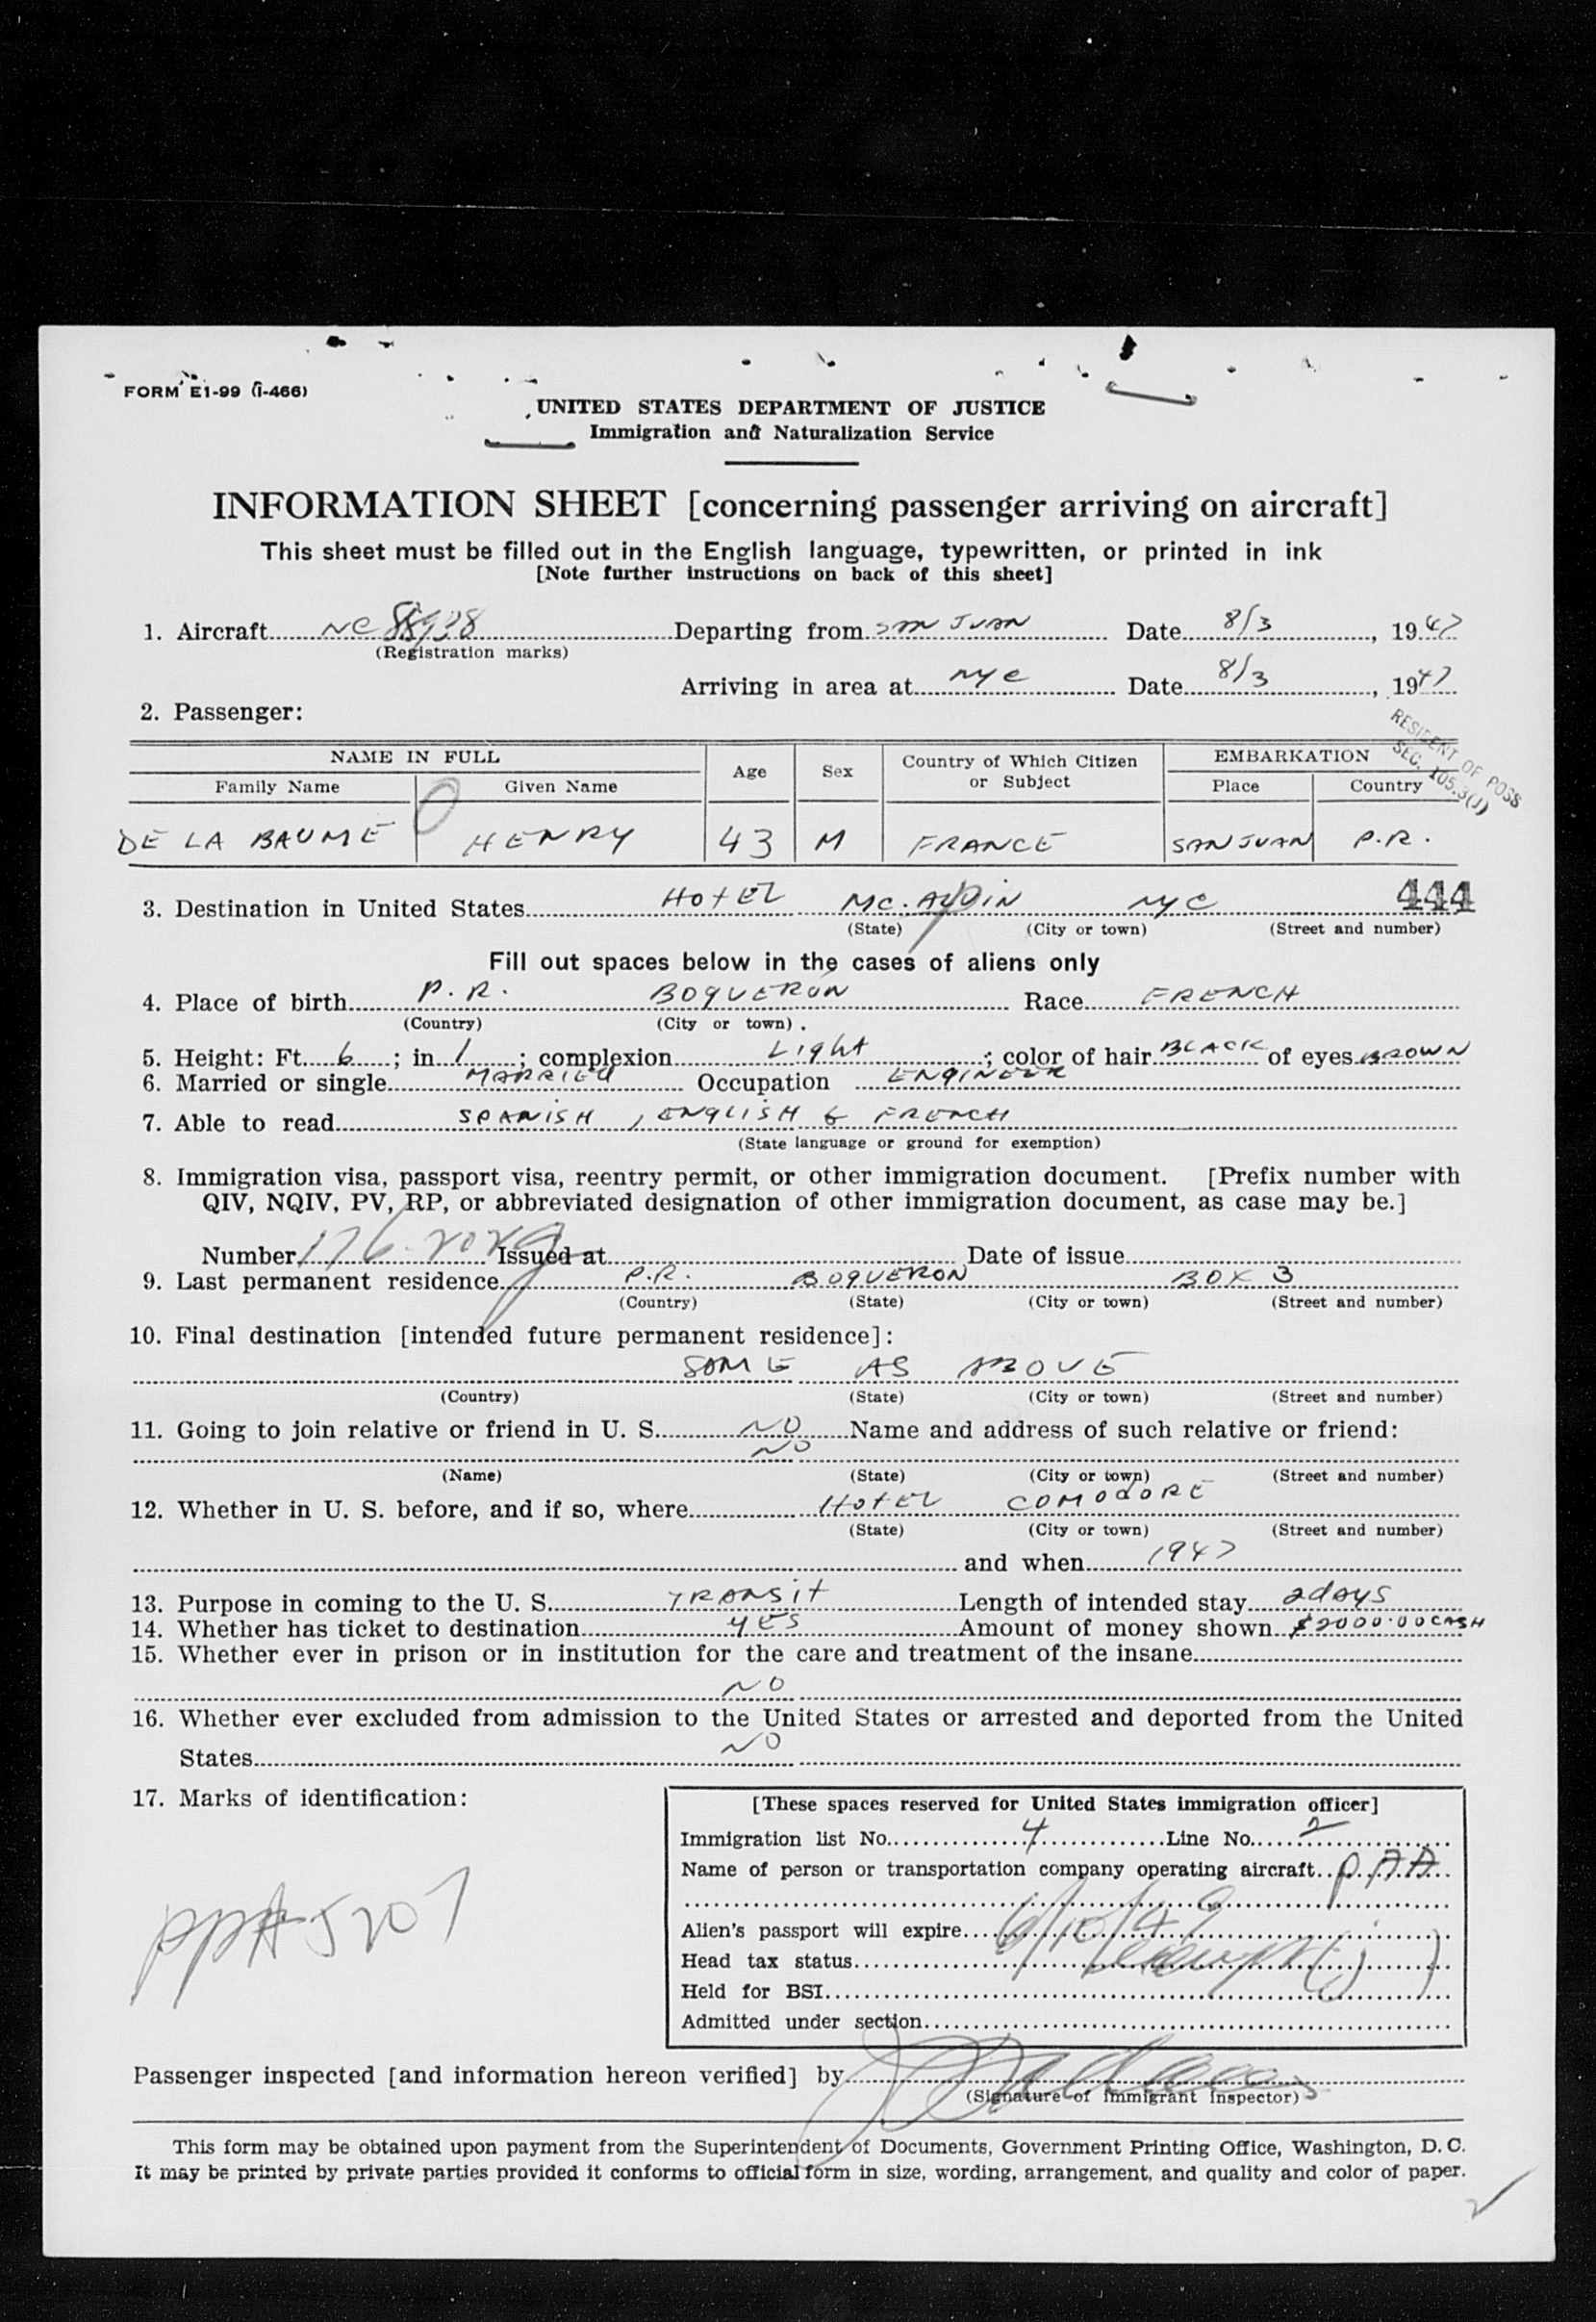 FORM E1-99 (I-466)
UNITED STATES DEPARTMENT OF JUSTICE
Immigration and Naturalization Service
INFORMATION SHEET [concerning passenger arriving on aircraft]
This sheet must be filled out in the English language, typewritten, or printed in ink
[Note further instructions on back of this sheet]
1. Aircraft NC 88938 Departing from SAN JUAN Date 8/3, 1947
(Registration marks)
Arriving in area at NYC Date 8/3, 1947
2. Passenger:
RESIDENT OF POSS
SEC. 105.3(J)
NAME IN FULL Age Sex Country of Which Citizen or Subject EMBARKATION
Family Name Given Name Place Country
DE LA BAUME HENRY 43 M FRANCE SAN JUAN P.R.
444
3. Destination in United States HOTEL MC. ALPIN NYC
(State) (City or town) (Street and number)
Fill out spaces below in the cases of aliens only
4. Place of birth P.R. BOQUERON Race FRENCH
(Country) (City or town)
5. Height: Ft. 6; in. 1; complexion Light; color of hair BLACK of eyes BROWN
6. Married or single MARRIED Occupation ENGINEER
7. Able to read SPANISH, ENGLISH & FRENCH
(State language or ground for exemption)
8. Immigration visa, passport visa, reentry permit, or other immigration document. [Prefix number with
QIV, NQIV, PV, RP, or abbreviated designation of other immigration document, as case may be.]
Number Issued at Date of issue
9. Last permanent residence P.R. BOQUERON BOX 3
(Country) (State) (City or town) (Street and number)
10. Final destination [intended future permanent residence]:
SAME AS ABOVE
(Country) (State) (City or town) (Street and number)
11. Going to join relative or friend in U. S. NO Name and address of such relative or friend:
NO
(Name) (State) (City or town) (Street and number)
12. Whether in U. S. before, and if so, where HOTEL COMODORE
(State) (City or town) (Street and number)
and when 1947
13. Purpose in coming to the U. S. TRANSIT Length of intended stay 2 days
14. Whether has ticket to destination YES Amount of money shown $2000.00 CASH
15. Whether ever in prison or in institution for the care and treatment of the insane
NO
16. Whether ever excluded from admission to the United States or arrested and deported from the United
States NO
17. Marks of identification:
[These spaces reserved for United States immigration officer]
Immigration list No. 4 Line No. 2
Name of person or transportation company operating aircraft PAA
Alien's passport will expire 6/10/49
Head tax status
Held for BSI
Admitted under section
Passenger inspected [and information hereon verified] by
(Signature of Immigrant Inspector)
This form may be obtained upon payment from the Superintendent of Documents, Government Printing Office, Washington, D. C.
It may be printed by private parties provided it conforms to official form in size, wording, arrangement, and quality and color of paper.